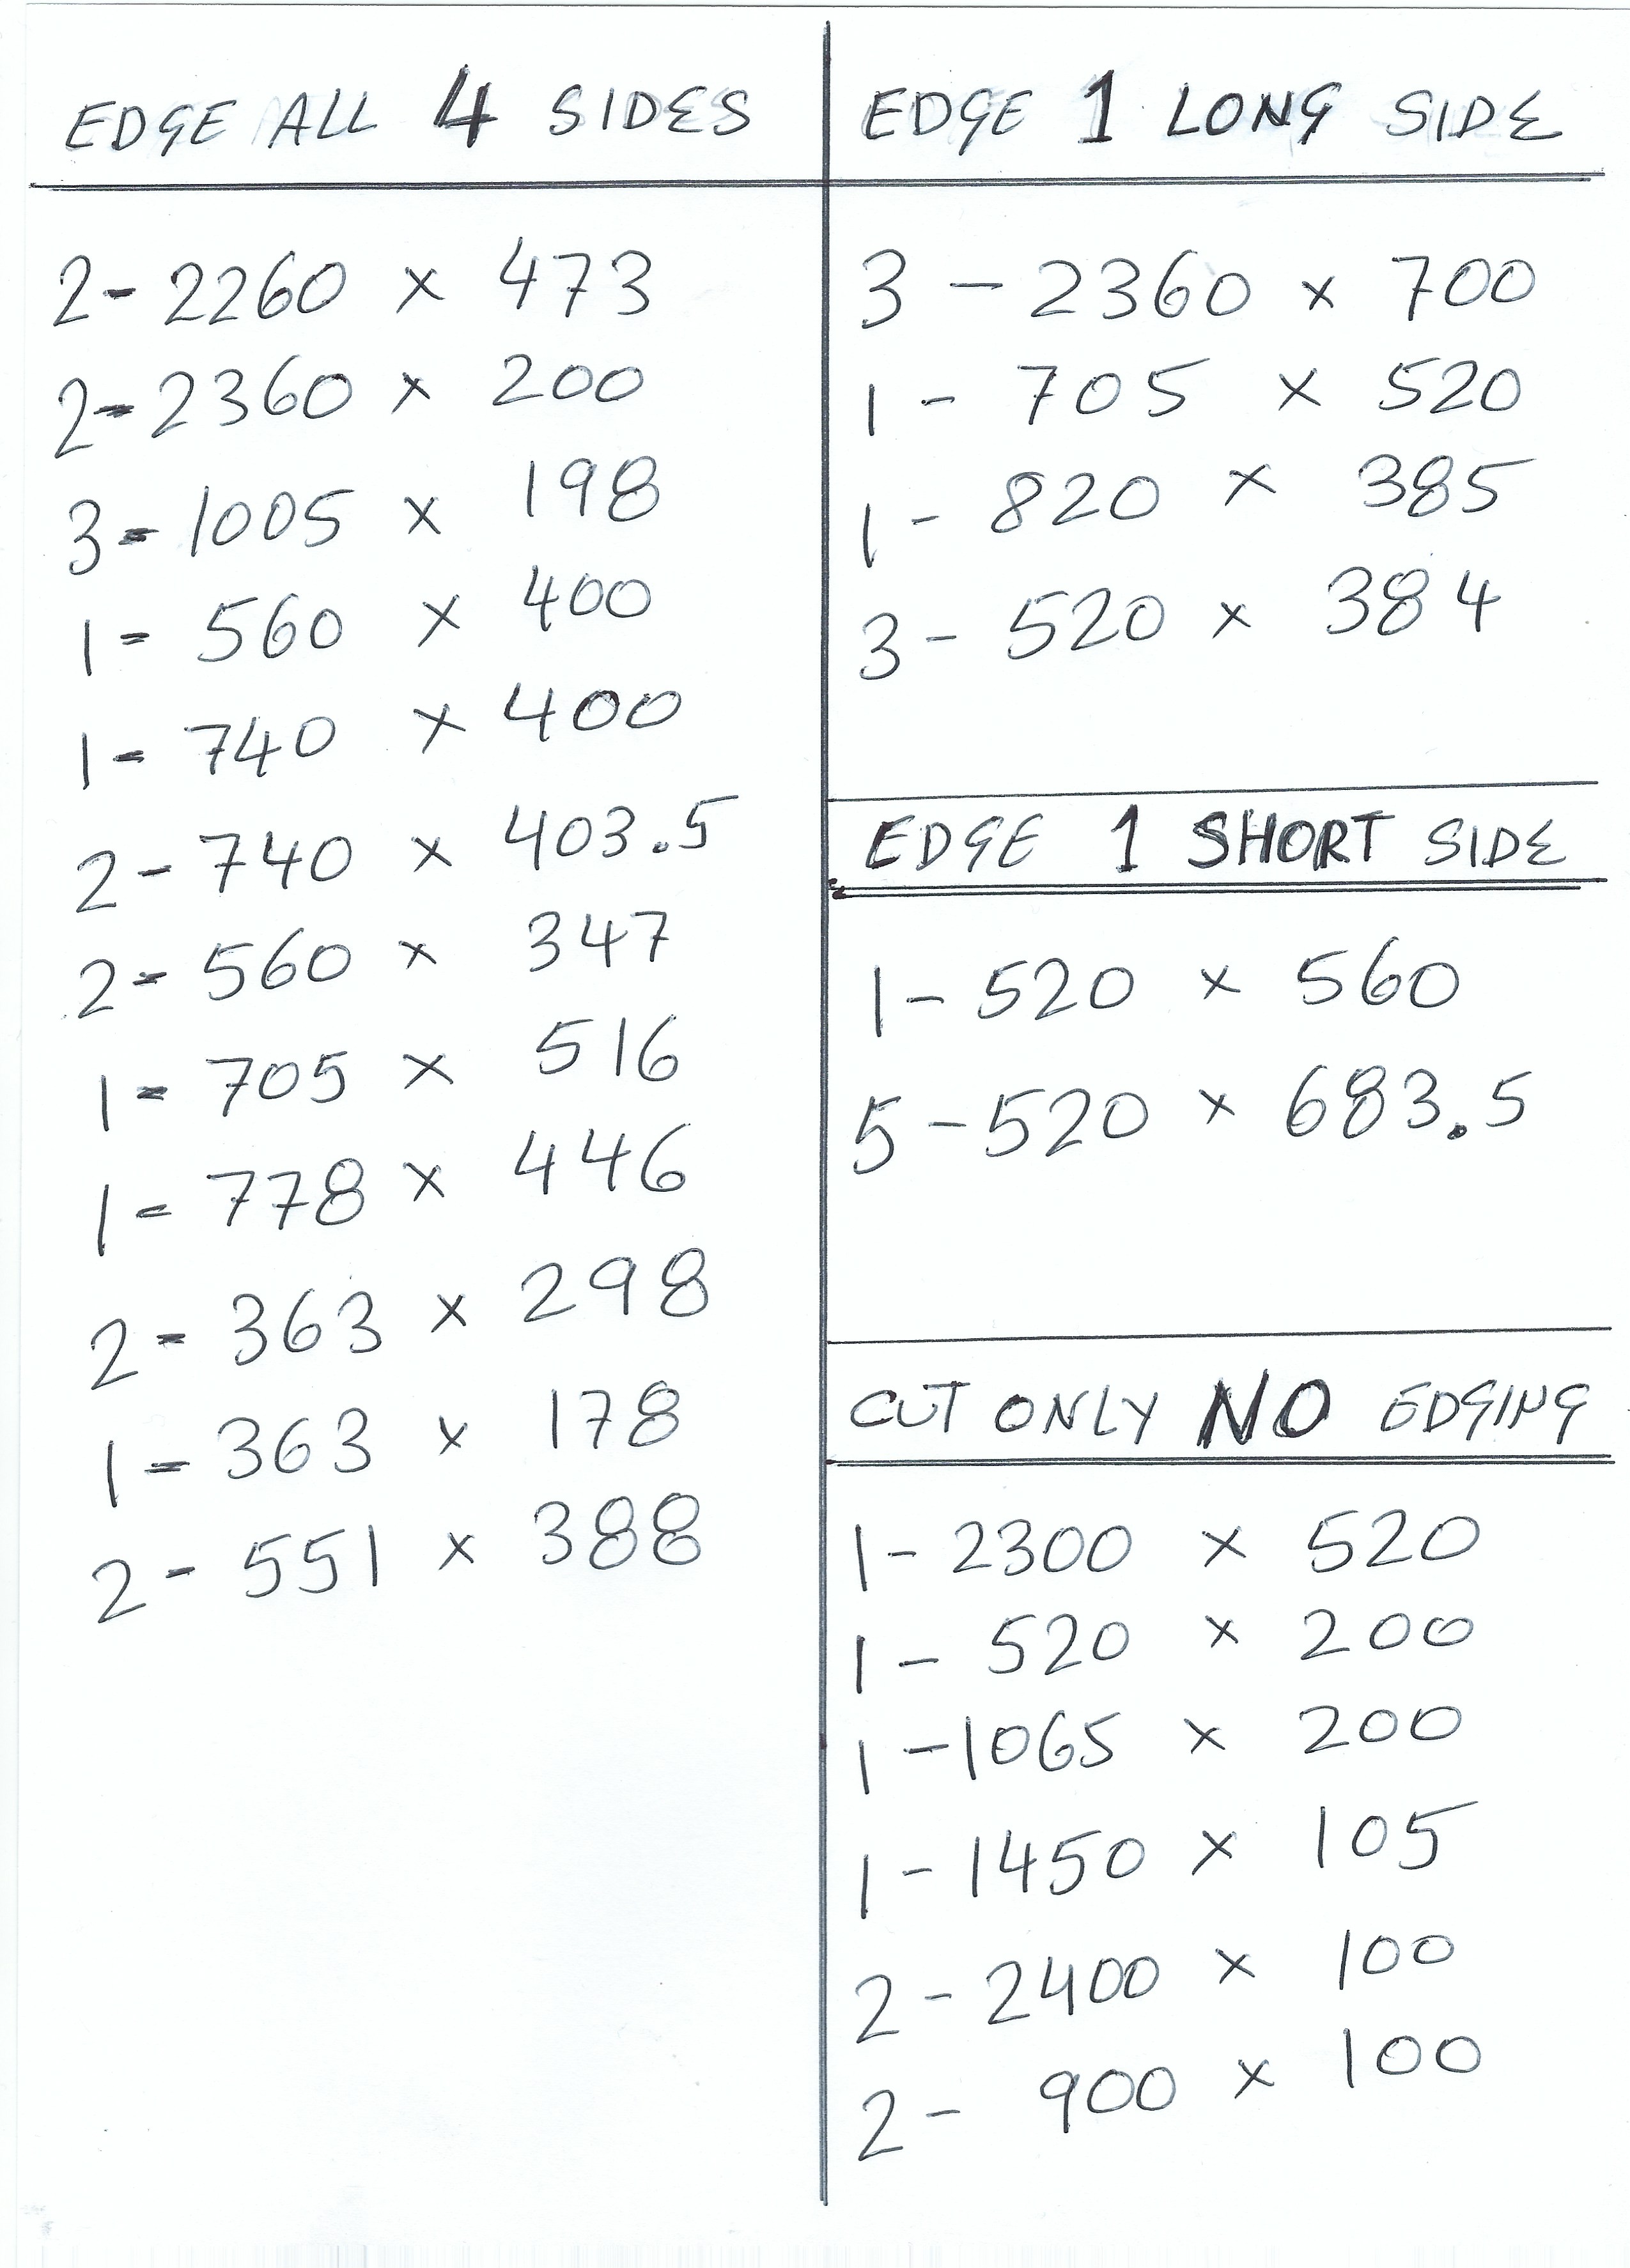 EDGE ALL 4 SIDES
2- 2260 x 473
2- 2360 x 200
3- 1005 x 198
1- 560 x 400
1- 740 x 400
2- 740 x 403.5
2- 560 x 347
1- 705 x 516
1- 778 x 446
2- 363 x 298
1- 363 x 178
2- 551 x 388
EDGE 1 LONG SIDE
3 - 2360 x 700
1 - 705 x 520
1 - 820 x 385
3 - 520 x 384
EDGE 1 SHORT SIDE
1 - 520 x 560
5 - 520 x 683.5
CUT ONLY NO EDGING
1 - 2300 x 520
1 - 520 x 200
1 - 1065 x 200
1 - 1450 x 105
2 - 2400 x 100
2 - 900 x 100